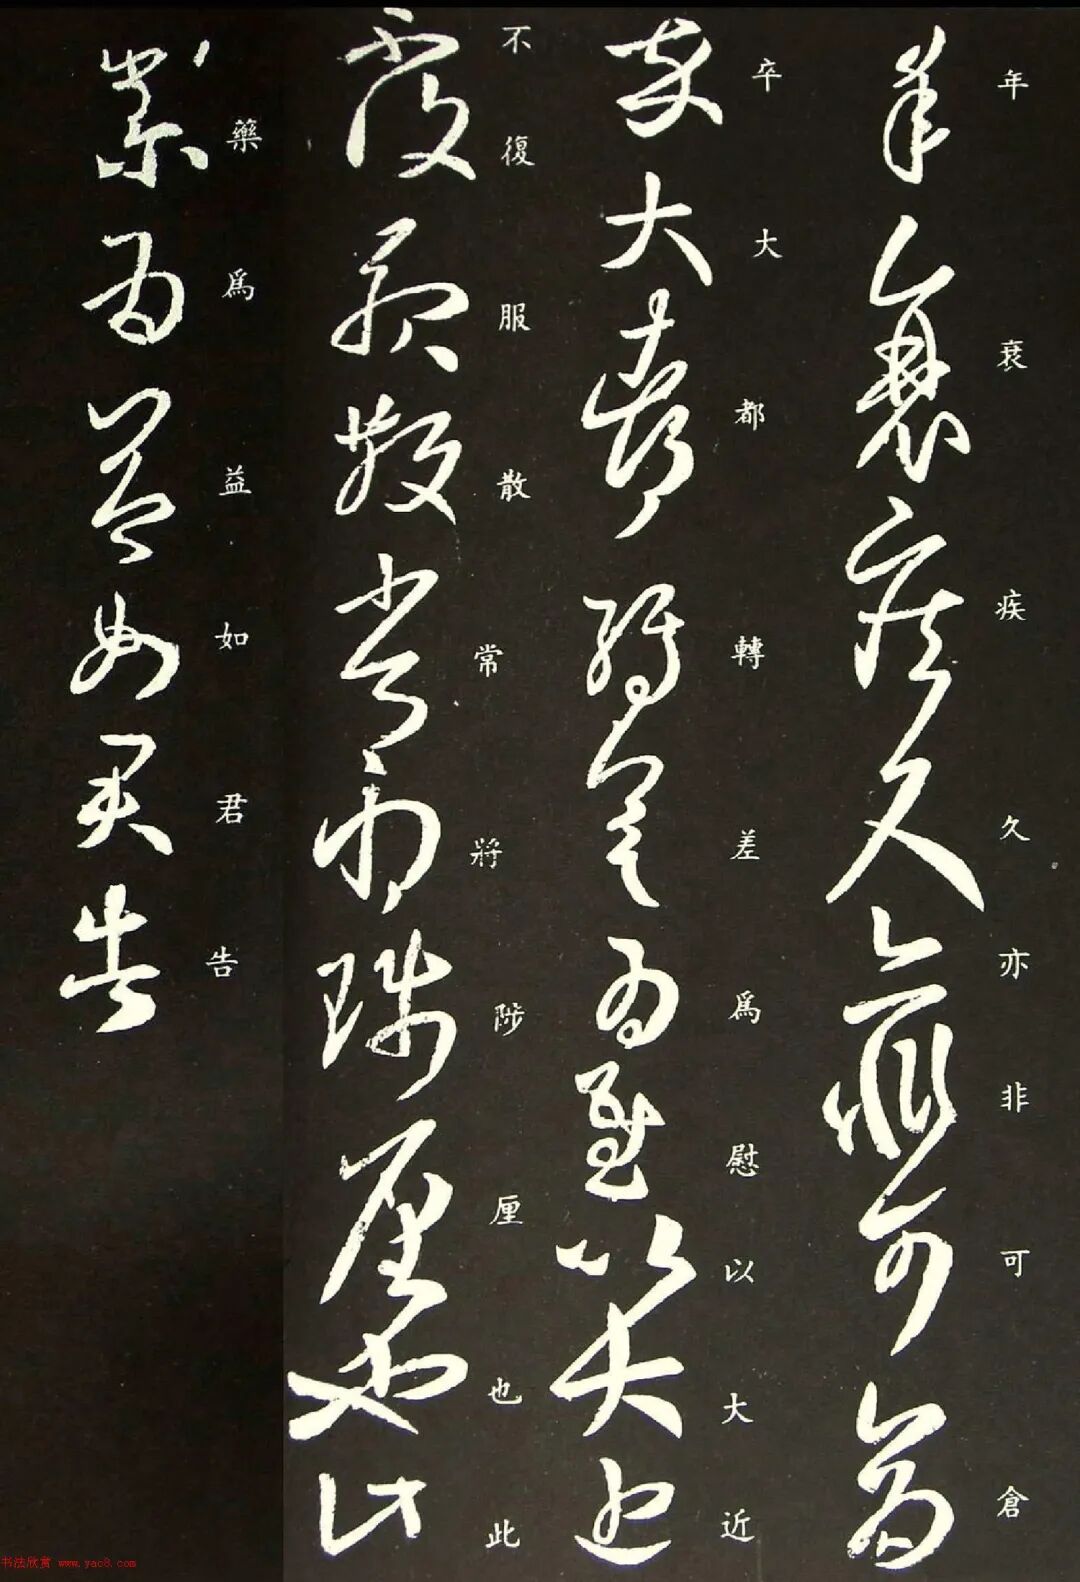 年衰疾久亦非可倉
卒大都轉差為慰以大近
不復服散常將陟厘也此
藥為益如君告
书法欣赏 www.yac8.com